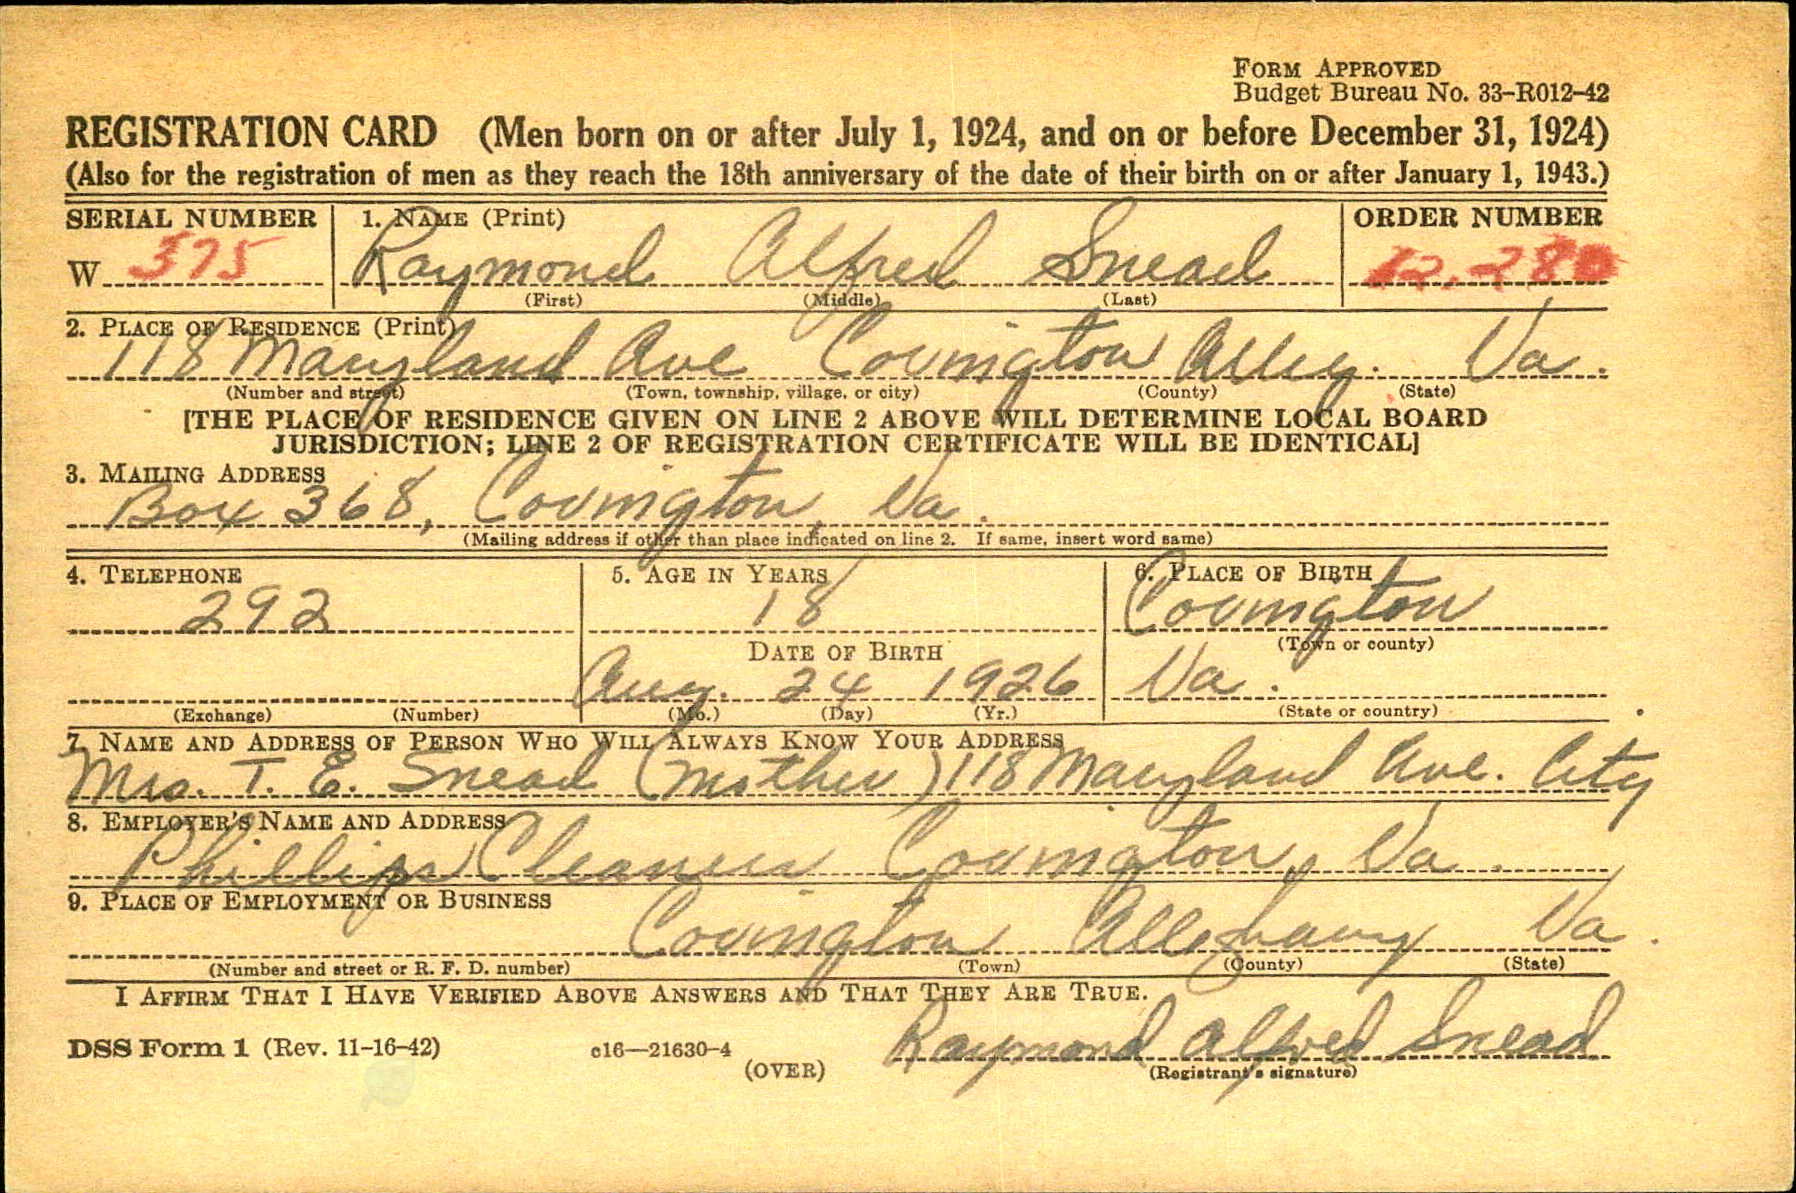 FORM APPROVED
Budget Bureau No. 33-R012-42
REGISTRATION CARD (Men born on or after July 1, 1924, and on or before December 31, 1924)
(Also for the registration of men as they reach the 18th anniversary of the date of their birth on or after January 1, 1943.)
SERIAL NUMBER 1. NAME (Print) ORDER NUMBER
W 375 Raymond Alfred Snead 12,280
(First) (Middle) (Last)
2. PLACE OF RESIDENCE (Print)
118 Maryland Ave Covington Alleg. Va.
(Number and street) (Town, township, village, or city) (County) (State)
[THE PLACE OF RESIDENCE GIVEN ON LINE 2 ABOVE WILL DETERMINE LOCAL BOARD
JURISDICTION; LINE 2 OF REGISTRATION CERTIFICATE WILL BE IDENTICAL]
3. MAILING ADDRESS
Box 368, Covington, Va.
(Mailing address if other than place indicated on line 2. If same, insert word same)
4. TELEPHONE 5. AGE IN YEARS 6. PLACE OF BIRTH
292 18 Covington
(Town or county)
DATE OF BIRTH
Aug. 24 1926 Va.
(Exchange) (Number) (Mo.) (Day) (Yr.) (State or country)
7. NAME AND ADDRESS OF PERSON WHO WILL ALWAYS KNOW YOUR ADDRESS
Mrs. T. E. Snead (Mother) 118 Maryland Ave. City
8. EMPLOYER'S NAME AND ADDRESS
Phillips Cleaners Covington, Va.
9. PLACE OF EMPLOYMENT OR BUSINESS
Covington Alleghany Va.
(Number and street or R. F. D. number) (Town) (County) (State)
I AFFIRM THAT I HAVE VERIFIED ABOVE ANSWERS AND THAT THEY ARE TRUE.
Raymond Alfred Snead
DSS Form 1 (Rev. 11-16-42) c16—21630-4 (OVER) (Registrant's signature)